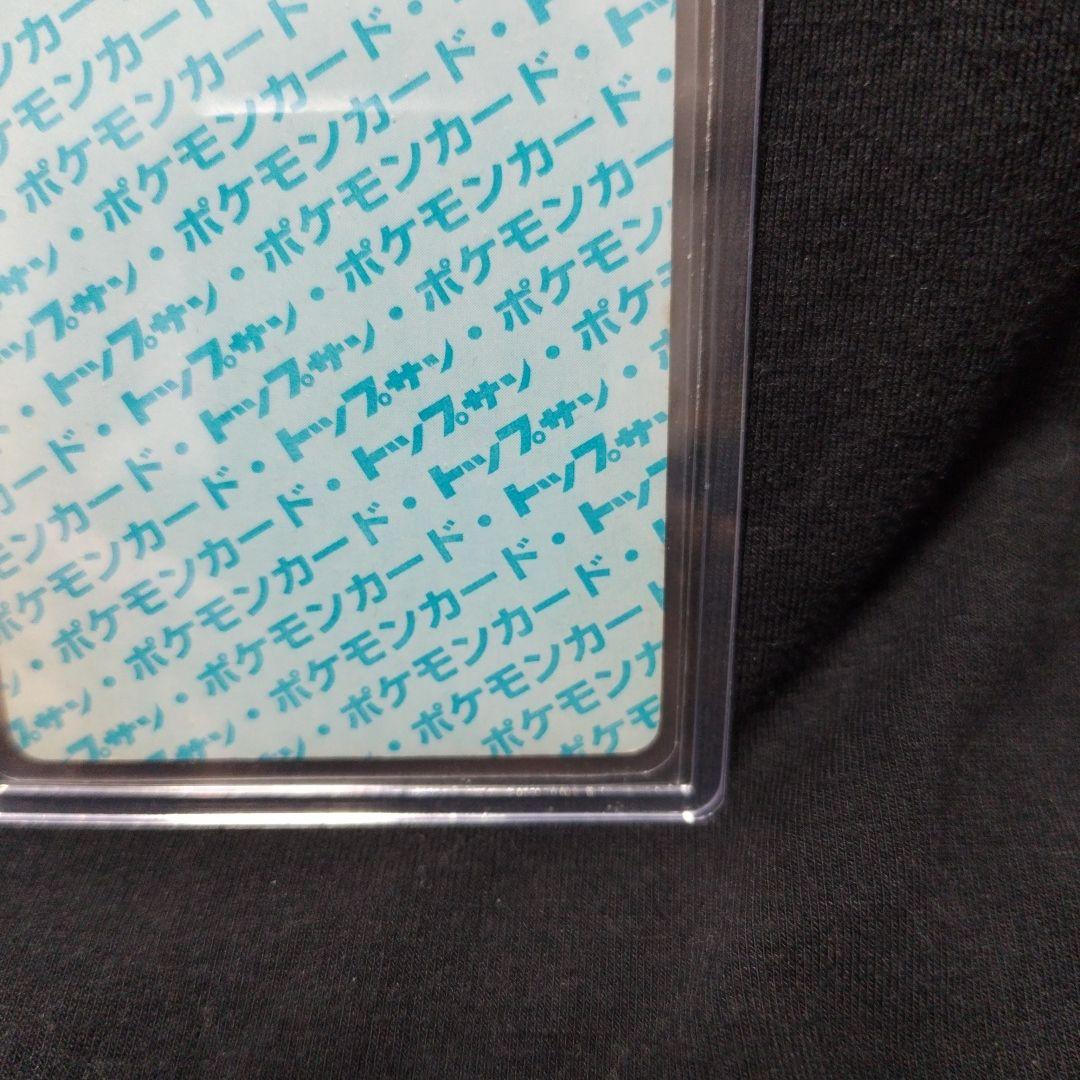 ンカ
ケモンカード
・ポケモンカード
ン・ポケモンカード・
サン・ポケモンカード・ト
・トップサン・ポケモンカード・
ード・トップサン・ポケモンカード
カード・トップサン・ポケモンカー
モンカード・トップサン・ポケモン
ポケモンカード・トップサン・ポケ
・ポケモンカード・トップサン・ポ
ン・ポケモンカード・トップサン
サン・ポケモンカード・トップ
トップサン・ポケモンカード・
プサン・ポケモンカード
・ポケモンカー
ポケモンカ
ポケモ